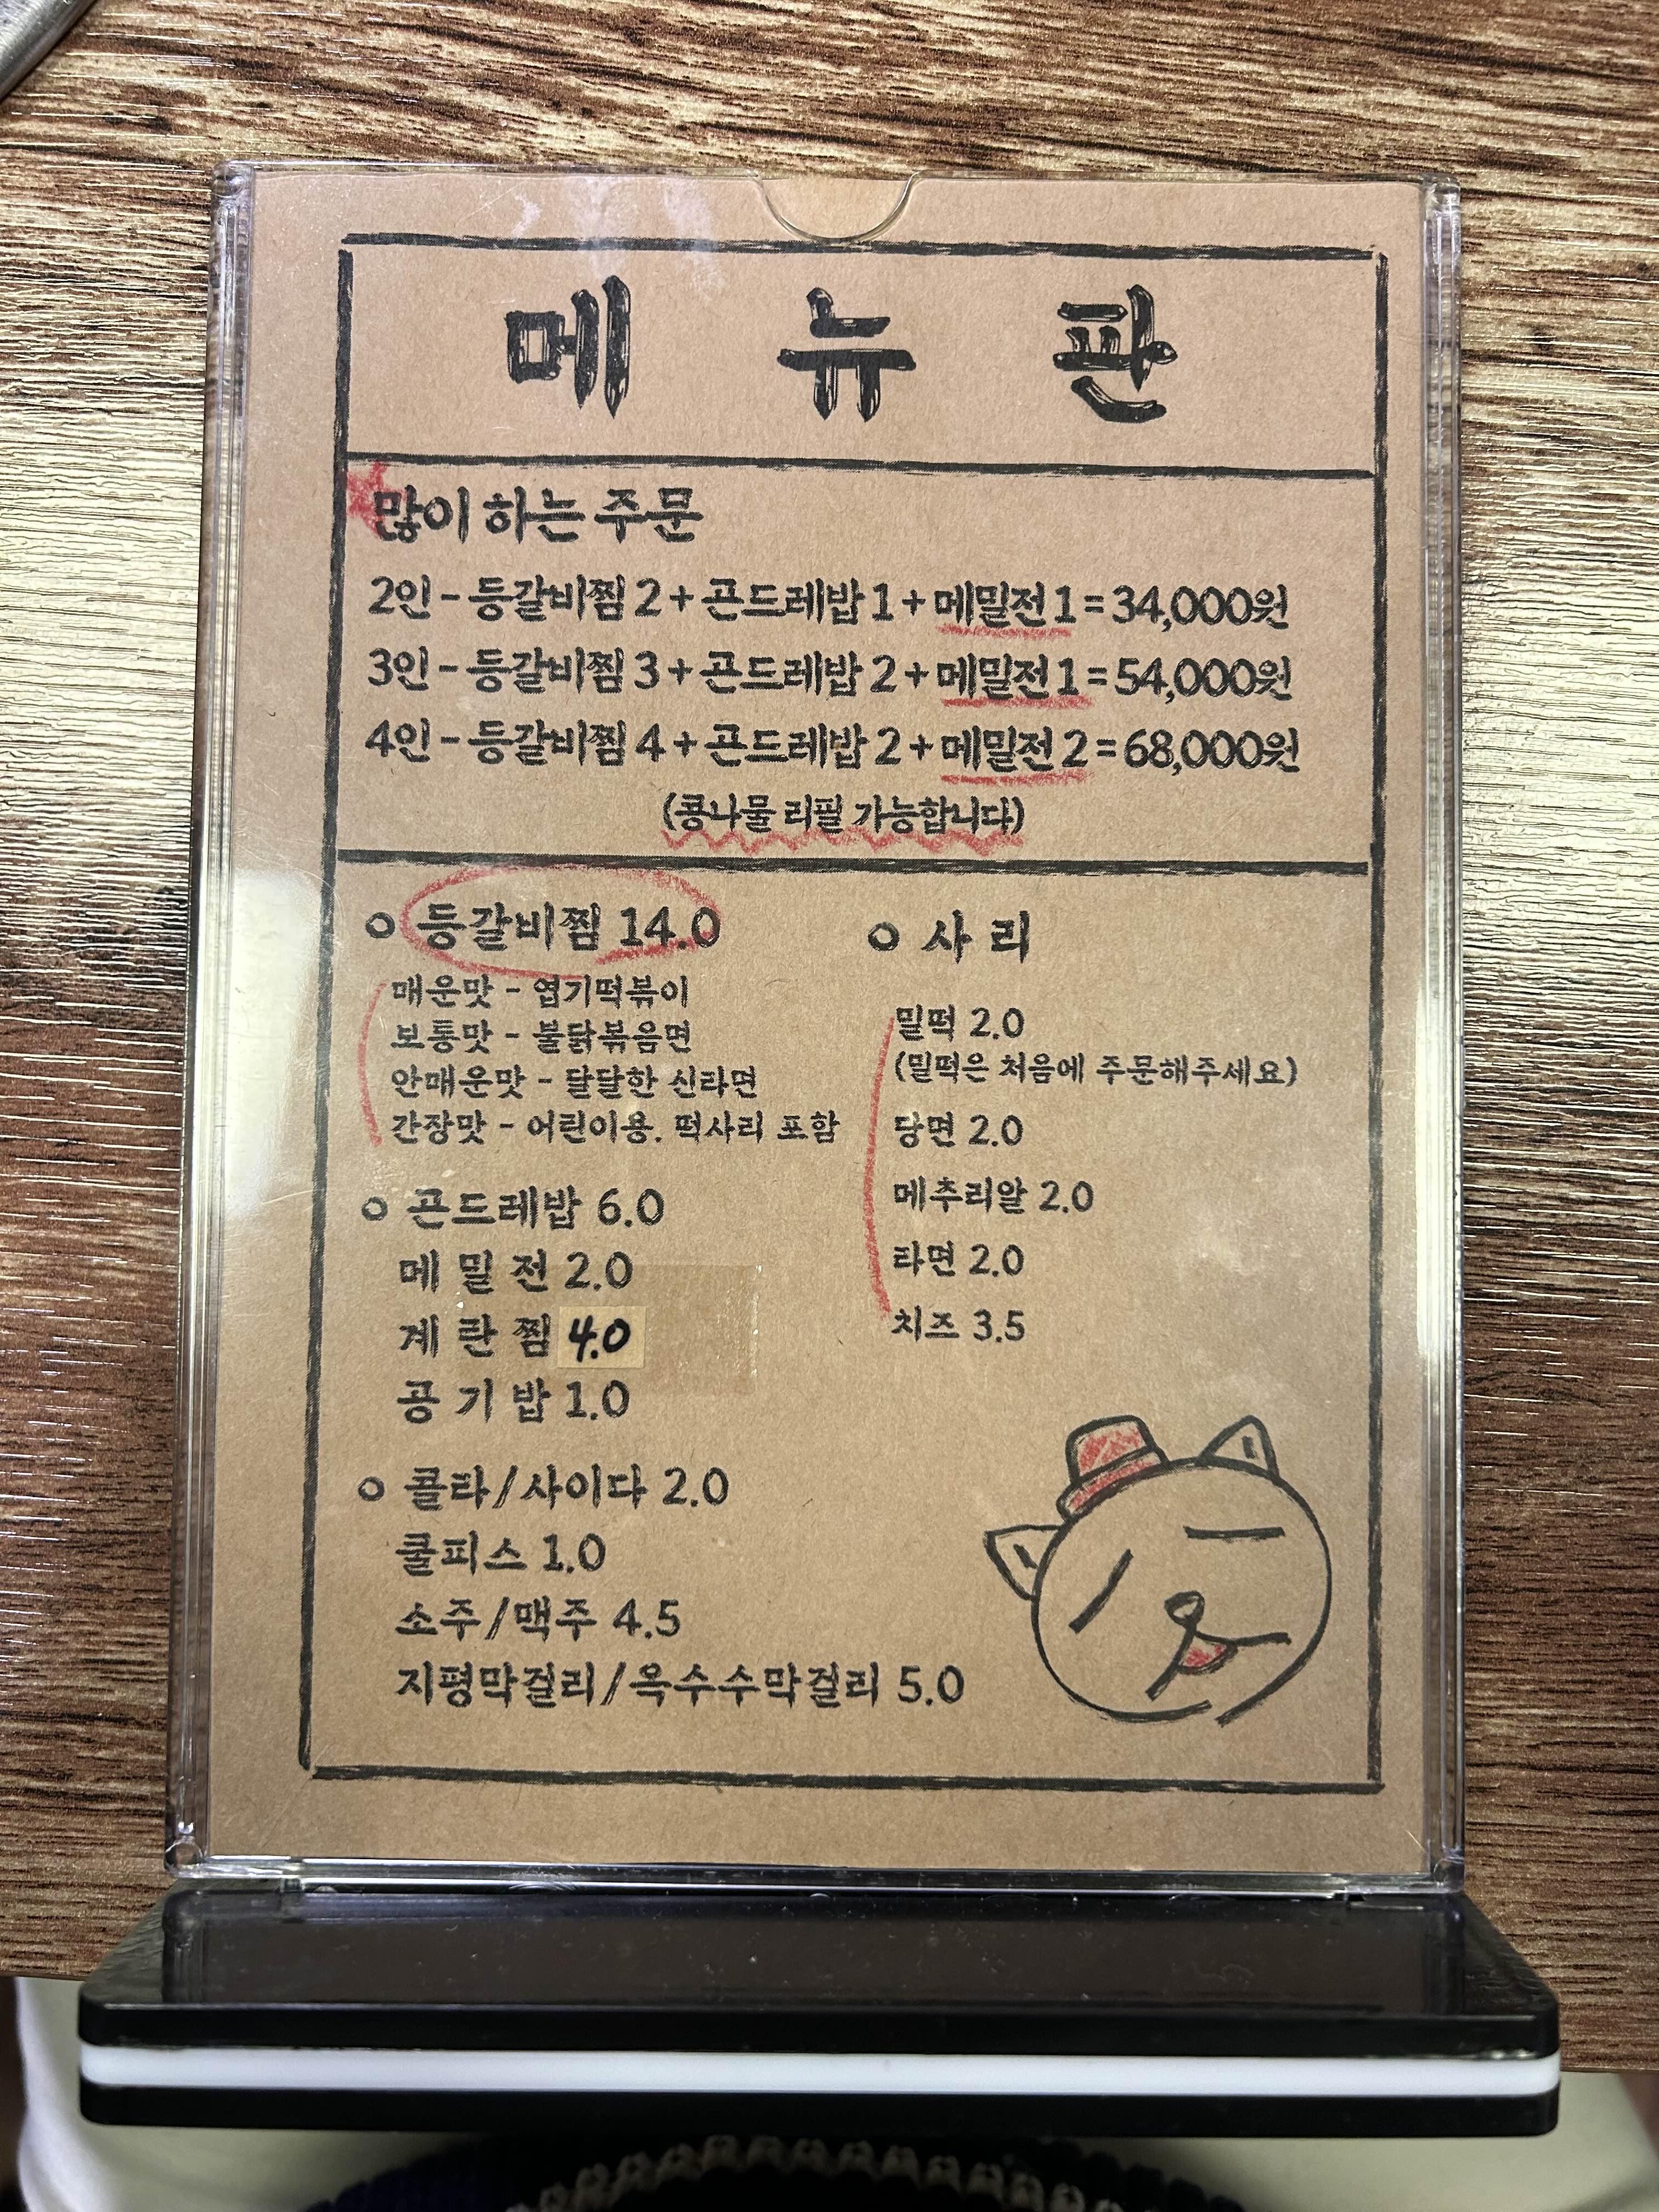 메 뉴 판
많이 하는 주문
2인 - 등갈비찜 2 + 곤드레밥 1 + 메밀전 1 = 34,000원
3인 - 등갈비찜 3 + 곤드레밥 2 + 메밀전 1 = 54,000원
4인 - 등갈비찜 4 + 곤드레밥 2 + 메밀전 2 = 68,000원
(콩나물 리필 가능합니다)
ㅇ 등갈비찜 14.0
매운맛 - 엽기떡볶이
보통맛 - 불닭볶음면
안매운맛 - 달달한 신라면
간장맛 - 어린이용. 떡사리 포함
ㅇ 곤드레밥 6.0
메 밀 전 2.0
계 란 찜 4.0
공 기 밥 1.0
ㅇ 콜라/사이다 2.0
쿨피스 1.0
소주/맥주 4.5
지평막걸리/옥수수막걸리 5.0
ㅇ 사 리
밀떡 2.0
(밀떡은 처음에 주문해주세요)
당면 2.0
메추리알 2.0
라면 2.0
치즈 3.5